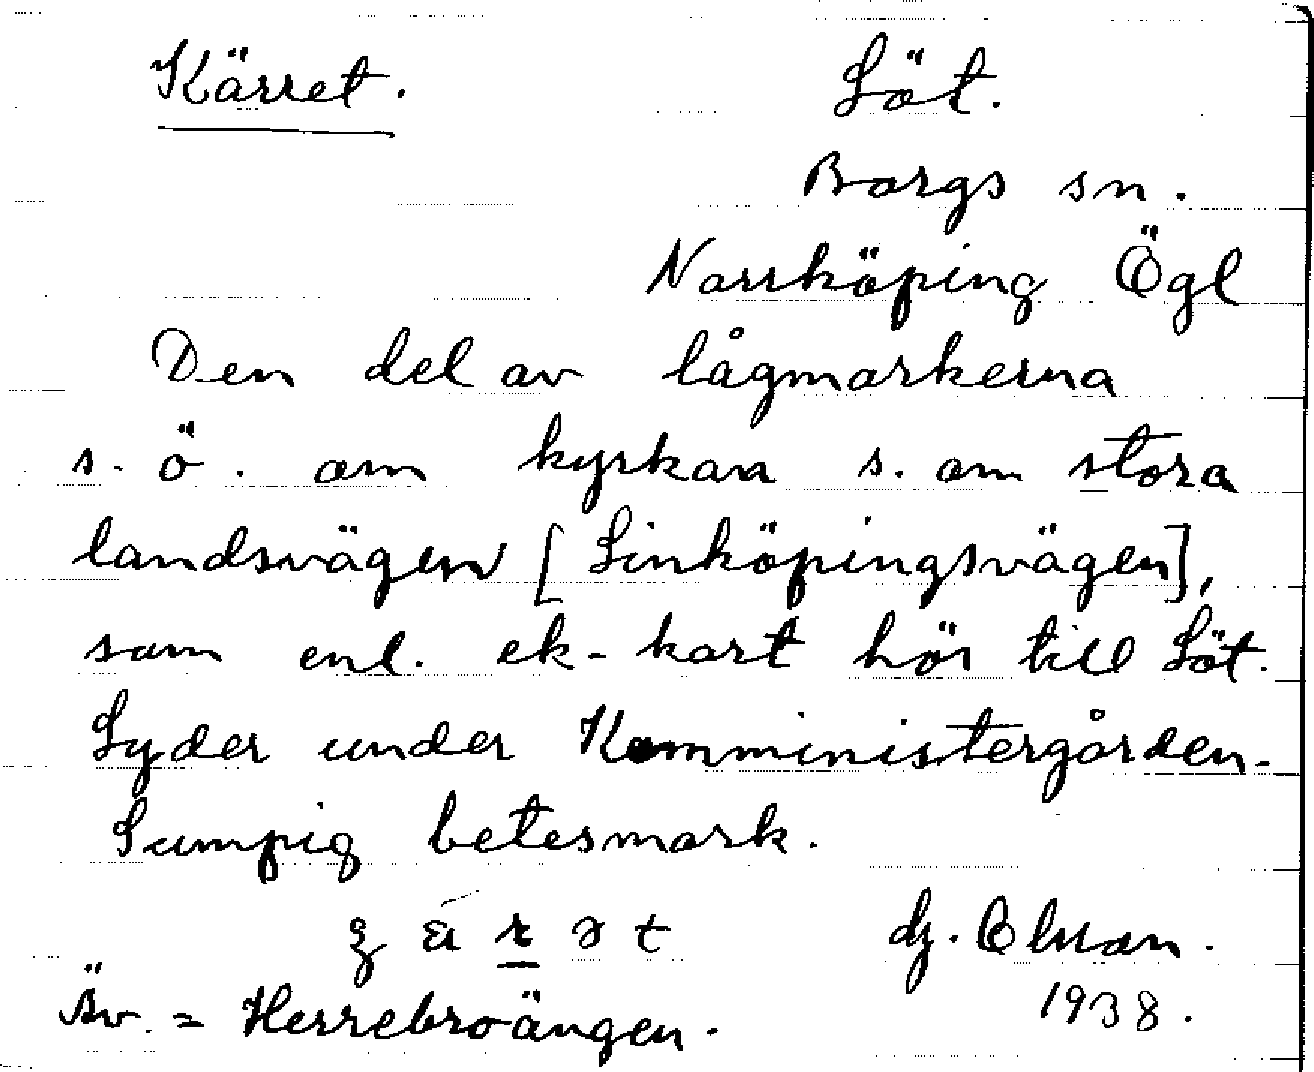 Kärret. Löt.
Borgs sn.
Norrköping Ögl
Den del av lågmarkerna
s. ö. om kyrkan s. om stora
landsvägen [Linköpingsvägen],
som enl. ek-kart hör till Löt.
Lyder under Komministergården.
Sumpig betesmark.
1938.
Äv. = Herrebroängen.